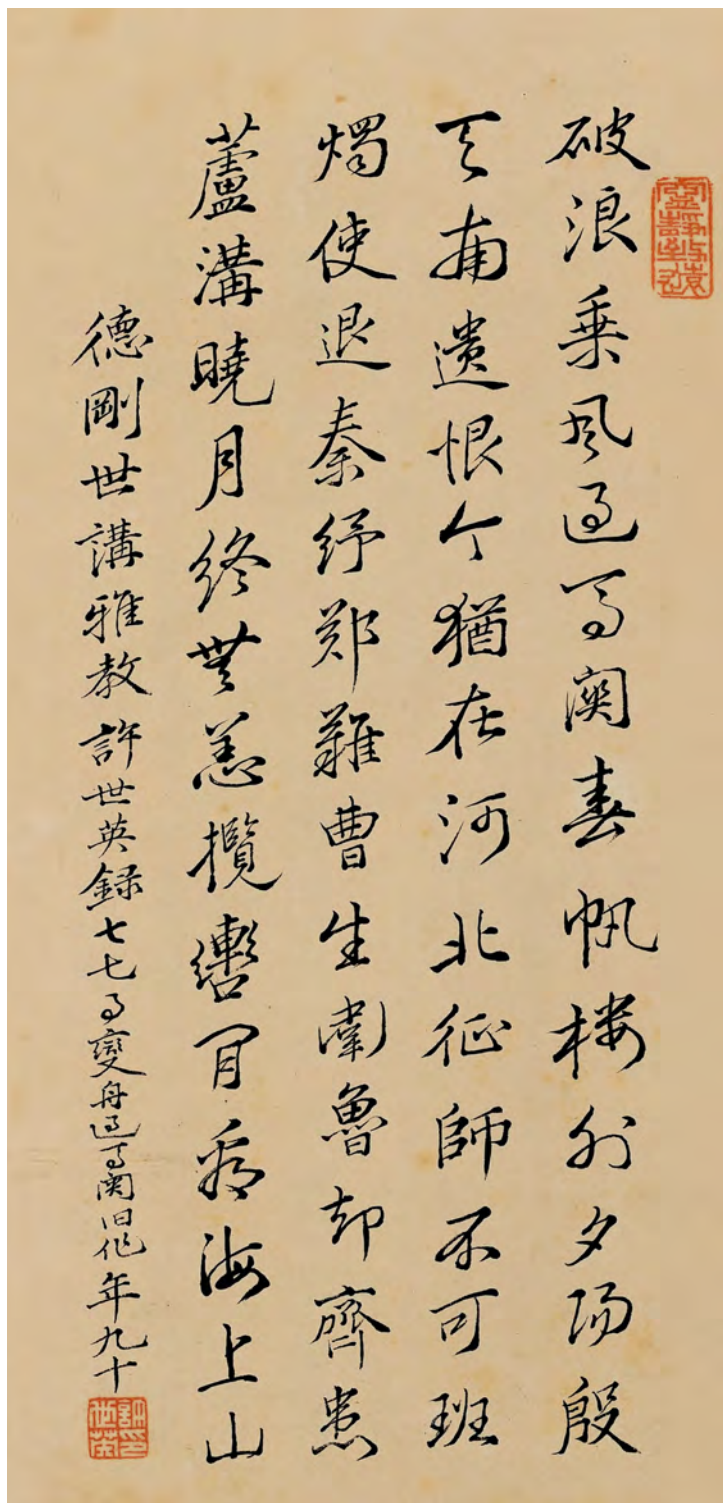 寧靜致遠
破浪乘風過馬關春帆楼外夕陽殷
天南遺恨今猶在河北征師不可班
燭使退秦紓郑難曹生衛魯却齊患
蘆溝曉月終無恙攬轡閒看海上山
德剛世講雅教 許世英録七七事變舟過馬關旧作 年九十
許世英印